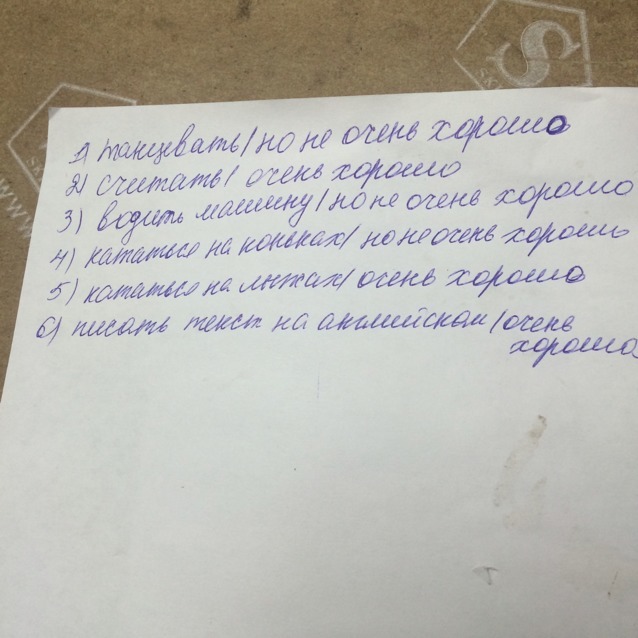 1) танцевать/ но не очень хорошо
2) считать/ очень хорошо
3) водить машину/ но не очень хорошо
4) кататься на коньках/ но не очень хорошо
5) кататься на лыжах/ очень хорошо
6) писать текст на английском/ очень
хорошо